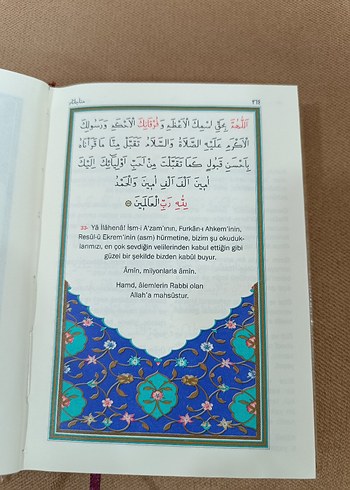 اَللّٰهُمَّ بِحَقِّ اِسْمِكَ الْاَعْظَمِ وَفُرْقَانِكَ الْاَحْكَمِ وَرَسُولِكَ
الْاَكْرَمِ عَلَيْهِ الصَّلَاةُ وَالسَّلَامُ تَقَبَّلْ مِنَّا مَا قَرَأْنَاهُ
بِاَحْسَنِ قَبُولٍ كَمَا تَقَبَّلْتَ مِنْ اَحَبِّ اَوْلِيَائِكَ اِلَيْكَ
اٰمِينَ اَلْفَ اَلْفِ اٰمِينَ وَالْحَمْدُ
لِلّٰهِ رَبِّ الْعَالَمِينَ
33- Yâ İlâhenâ! İsm-i A'zam'ının, Furkân-ı Ahkem'inin,
Resûl-ü Ekrem'inin (asm) hürmetine, bizim şu okuduk-
larımızı, en çok sevdiğin velilerinden kabul ettiğin gibi
güzel bir şekilde bizden kabûl buyur.
Âmîn, milyonlarla âmîn.
Hamd, âlemlerin Rabbi olan
Allah'a mahsûstur.